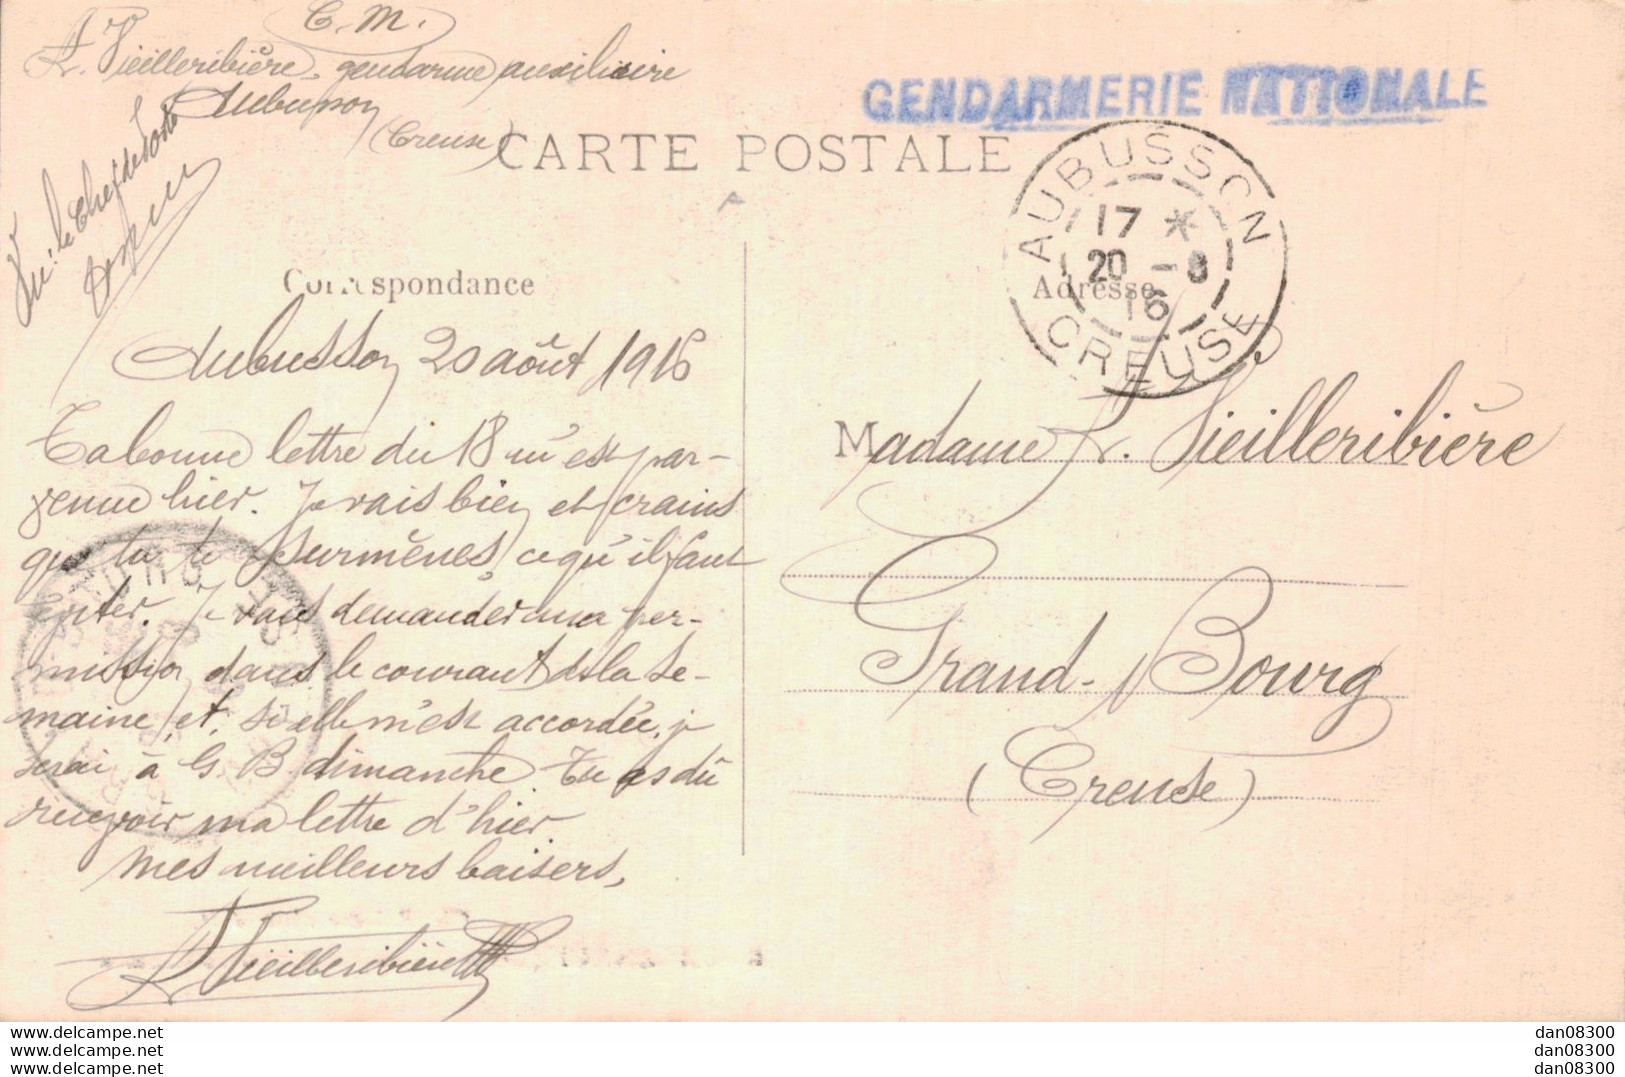 C. M.
Vieilleribière, gendarme auxiliaire
Aubusson
(Creuse)
Vu: le Chef de Poste
GENDARMERIE NATIONALE
CARTE POSTALE
AUBUSSON
17 *
20 - 8
16
CREUSE
Correspondance
Adresse
Aubusson 20 août 1916
Ta bonne lettre du 18 m'est par-
venue hier. Je vais bien et crains
que tu te surmènes, ce qu'il faut
éviter. Je vais demander ma per-
mission dans le courant de la se-
maine, et, si elle m'est accordée, je
serai à G. B. dimanche. Tu as dû
recevoir ma lettre d'hier.
Mes meilleurs baisers,
Vieilleribière
Madame Vieilleribière
Grand-Bourg
(Creuse)
www.delcampe.net
www.delcampe.net
www.delcampe.net
dan08300
dan08300
dan08300